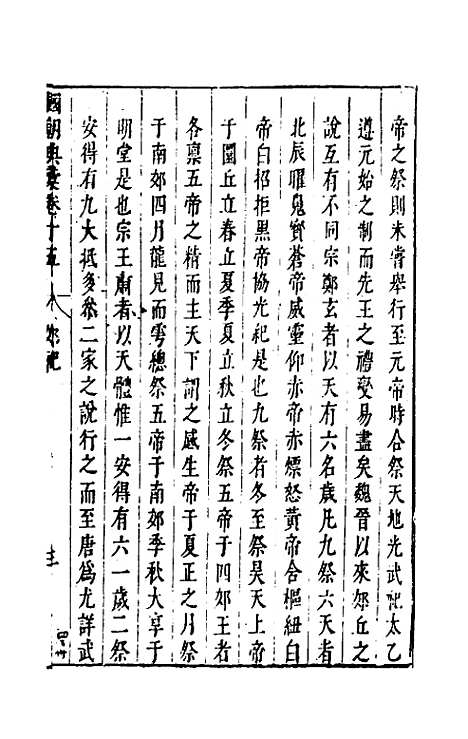 帝之祭則未嘗舉行至元帝時合祭天地光武祀太乙
遵元始之制而先王之禮變易盡矣魏晉以來郊丘之
說互有不同宗鄭玄者以天有六名歲凡九祭六天者
北辰曜魄寶蒼帝威靈仰赤帝赤熛怒黃帝含樞紐白
帝白招拒黑帝協光祀是也九祭者冬至祭昊天上帝
于圜丘立春立夏季夏立秋立冬祭五帝于四郊王者
各稟五帝之精而主天下謂之感生帝于夏正之月祭
于南郊四月龍見而雩總祭五帝于南郊季秋大享于
明堂是也宗王肅者以天體惟一安得有六一歲二祭
安得有九大抵多參二家之說行之而至唐爲尤詳武
國朝典彙卷十五 郊祀